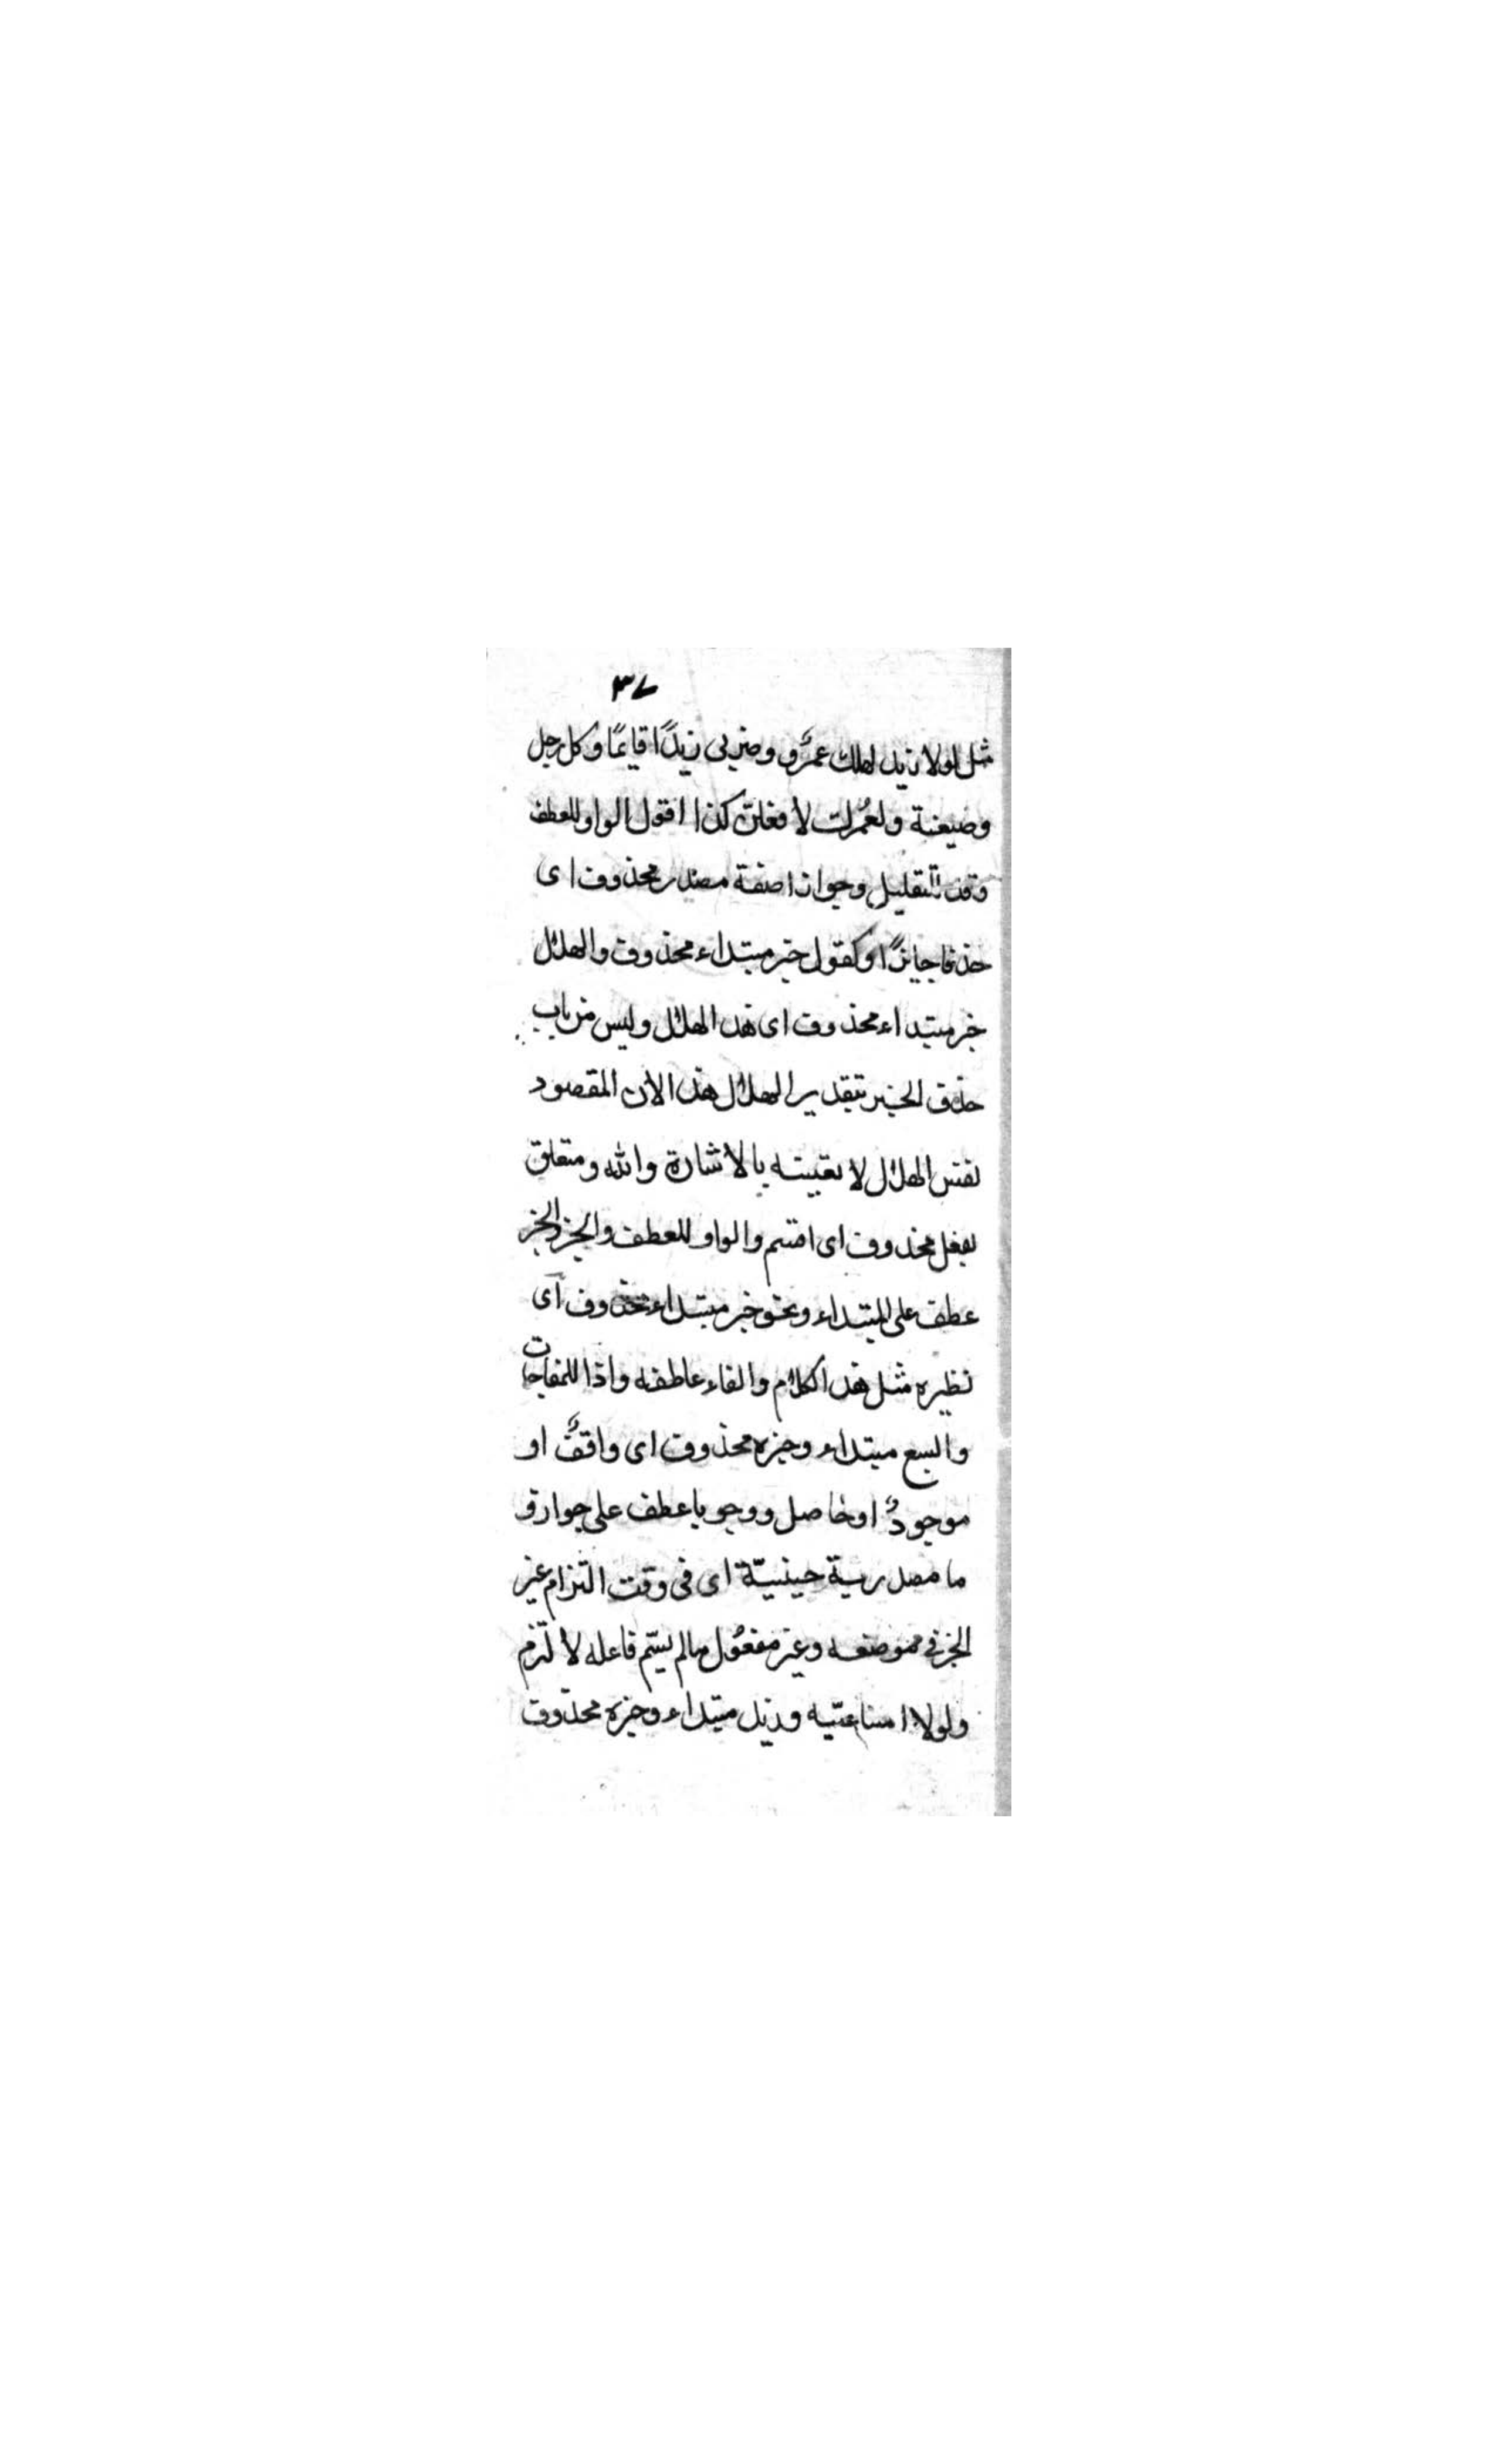 ٣٧
مثل لولا زيد لهلك عمرٌو وضربى زيدًا قايمًا وكل رجل
وضيعته ولعمُرك لا فعلن كذا اقول الواو للعطف
وقد للتقليل وجوازا صفة مصدر محذوف اى
حذفا جايزًا وكقول خبر مبتداء محذوف والهلال
خبر مبتداء محذوف اى هذا الهلال وليس من باب
حذف الخبر بتقدير الهلال هذا لان المقصود
نفس الهلال لا تعيينه بالاشارة والله ومتعلق
بفعل محذوف اى اقسم والواو للعطف والخبر الخبر
عطف على المبتداء ونحو خبر مبتداء محذوف اى
نظيره مثل هذا الكلام والفاء عاطفه واذا للمفاجات
والسبع مبتداء وخبره محذوف اى واقفٌ او
موجودٌ او حاصل ووجوبا عطف على جوارقو
ما مصدرية حينيّة اى فى وقت التزام غير
الخبر فى موضعه وغير مفعُول مالم يسّم فاعله لالتزم
ولولا امتناعيّه وزيد مبتداء وخبره محذوف